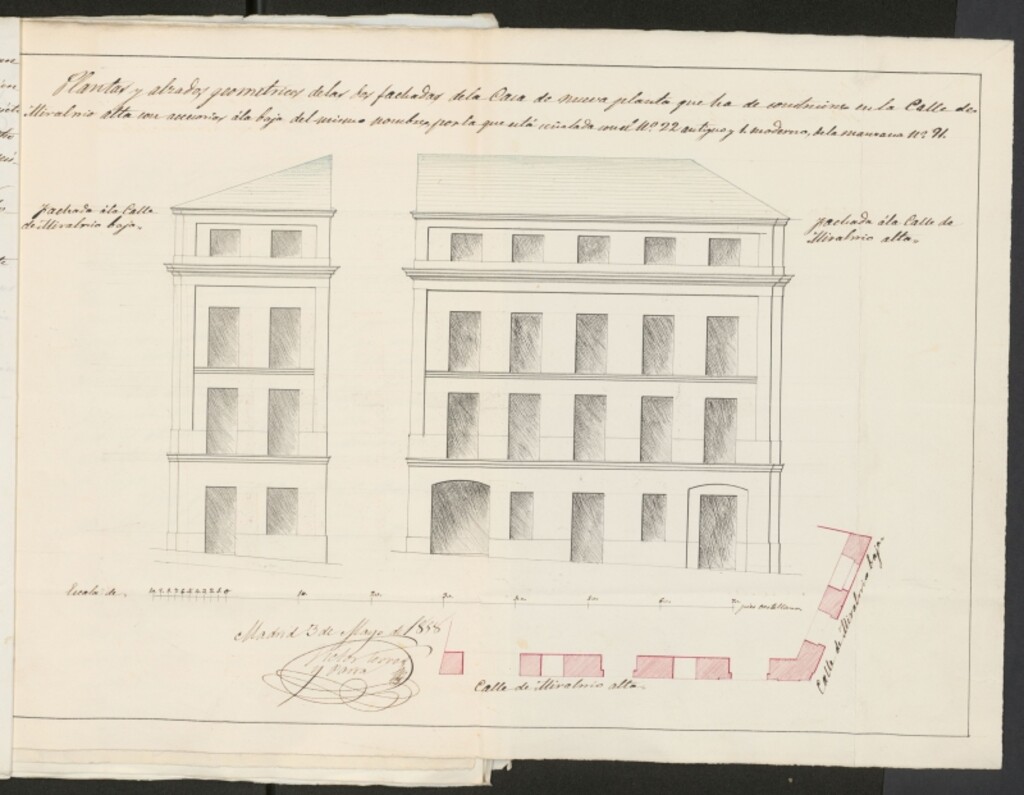 Plantas y alzados geometricos de las dos fachadas de la Casa de nueva planta que ha de construirse en la Calle de
Miralrio alta con accesorios á la baja del mismo nombre, por la que está señalada con el Nº 22 antiguo y 6 moderno, de la manzana Nº 71.
fachada á la Calle
de Miralrio baja.
fachada á la Calle de
Miralrio alta.
Escala de 10 9 8 7 6 5 4 3 2 1 0 10 20 30 40 50 60 70 pies castellanos
Madrid 3 de Mayo de 1858
y Parra
Calle de Miralrio alta.
Calle de Miralrio baja.